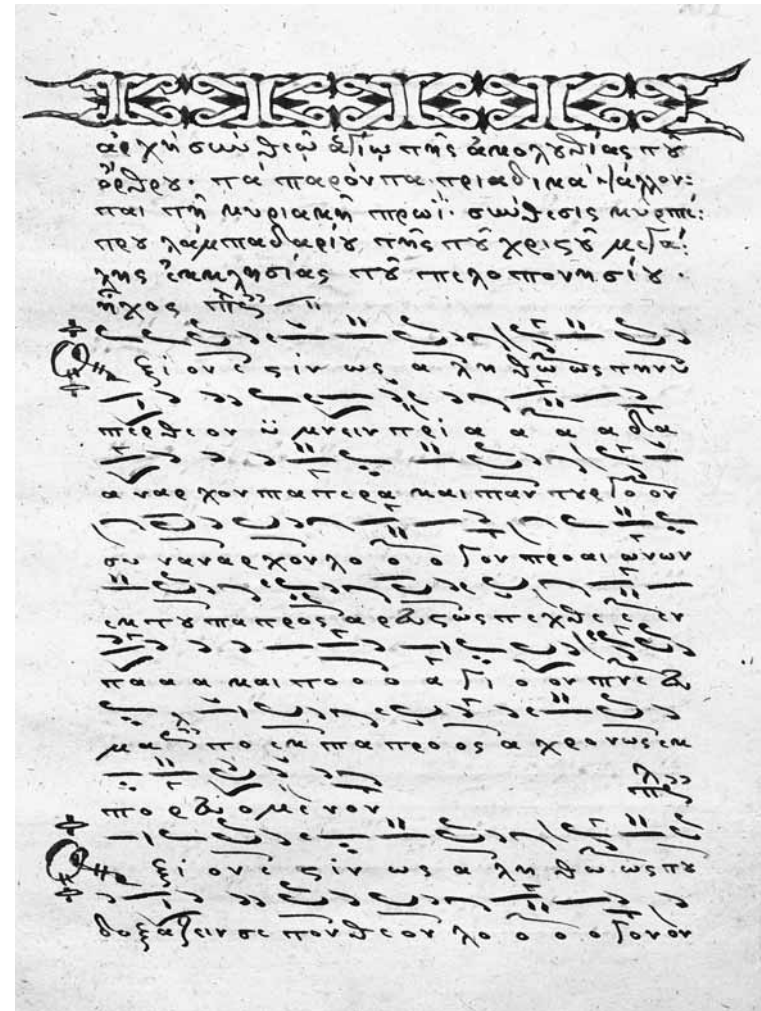 ἀρχὴ σὺν θεῷ ἁγίῳ τῆς ἀκολουθίας τοῦ
ὄρθρου· τὰ παρόντα τριαδικὰ ψάλλον:
ται τῇ κυριακῇ πρωΐ· σύνθεσις κυρ πέ:
τρου λαμπαδαρίου τῆς τοῦ χριστοῦ μεγά:
λης ἐκκλησίας τοῦ πελοποννησίου ·
ἦχος
Α ξι ον ε στιν ως α λη θω ως την υ
περθεον υ μνειν τρι α α α α δα
α ναρ χον πατερα και παντουργο ον
συ ναναρχον λο ο ο γον προ αι ωνων
εκ του πατρος αρευστως τεχθε ε εν
τα α α και το ο ο α γι ο ον πνε ευ
μα το εκ πατρο ος α χρονως εκ
πορευομενον
Α ξι ον ε στιν ως α λη θω ως του
δοξαζειν σε τον θεον λο ο ο ο γον ον